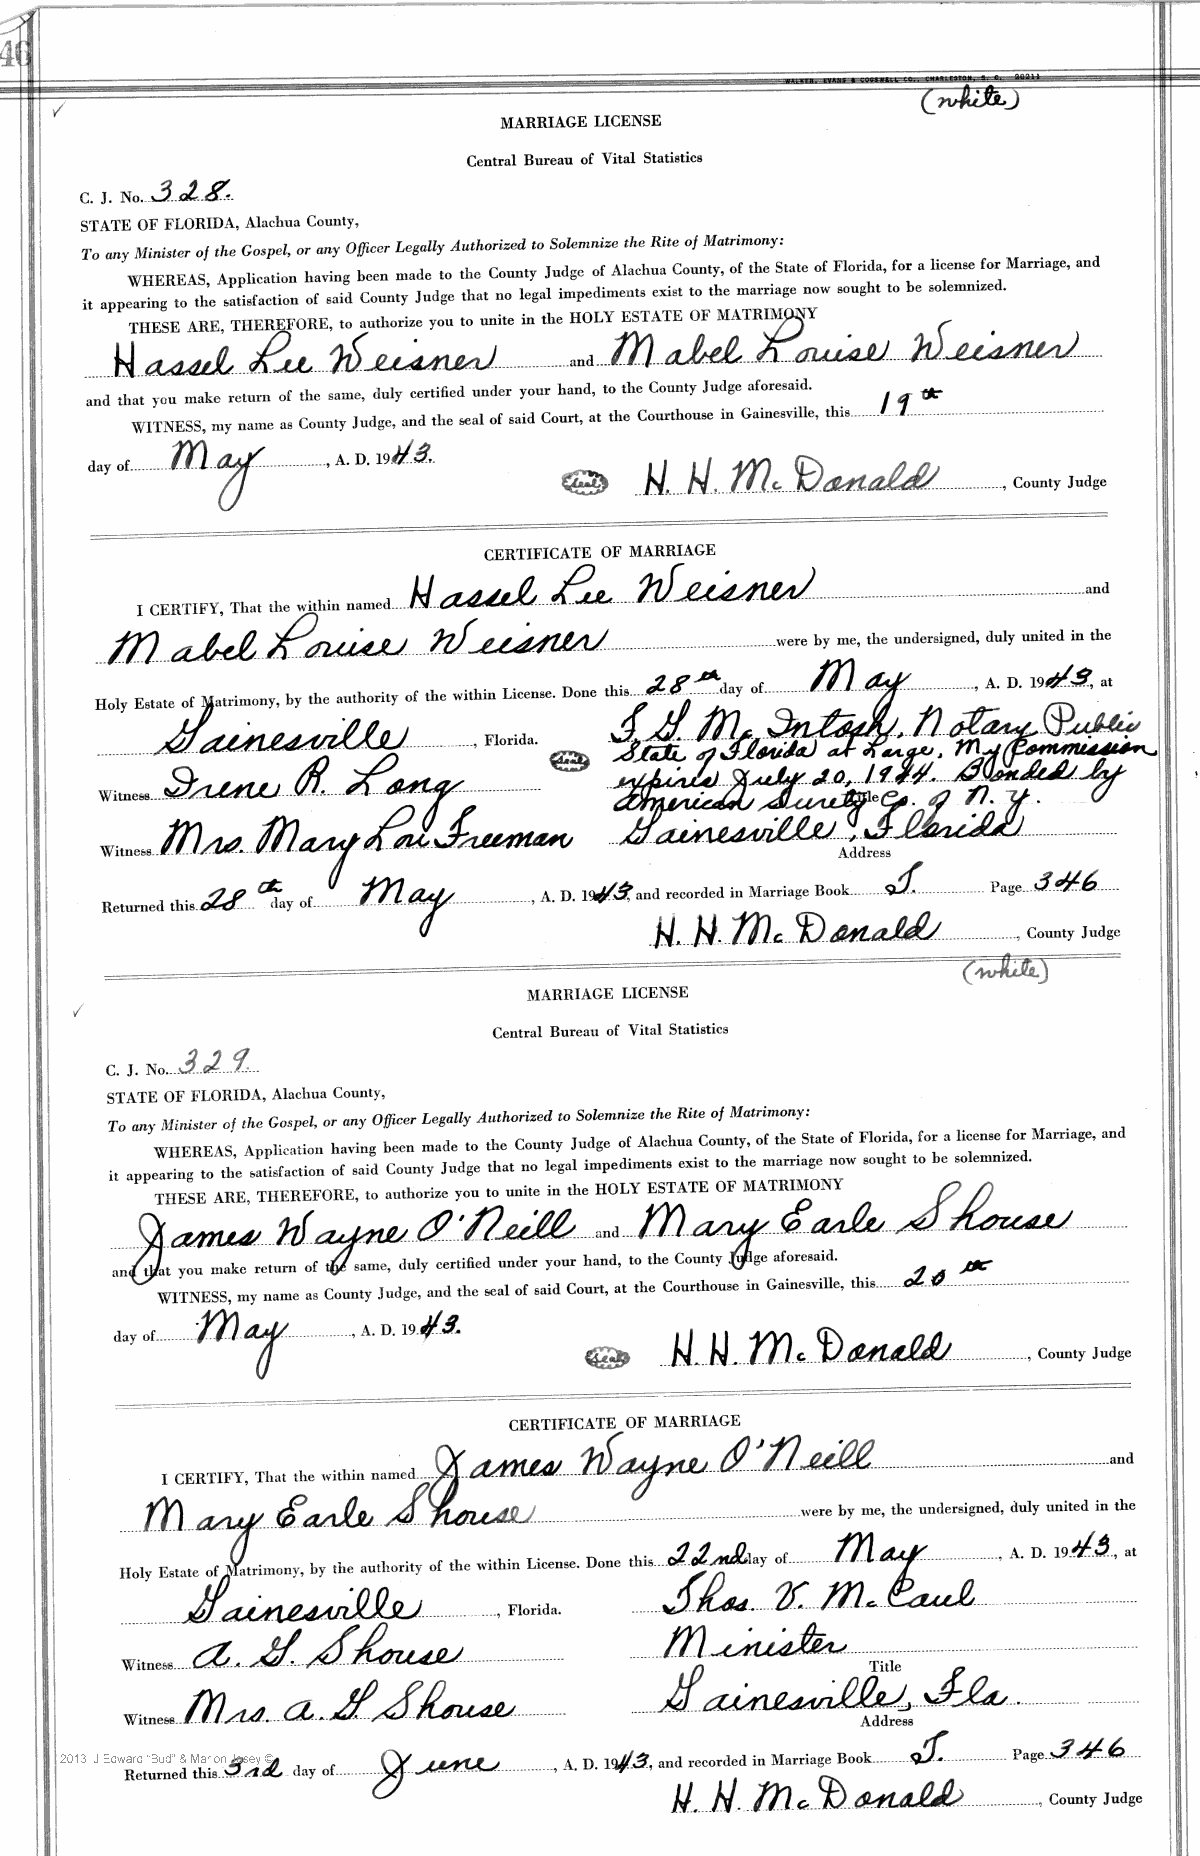 46
WALKER, EVANS & COGSWELL CO., CHARLESTON, S. C. 20211
(white)
MARRIAGE LICENSE
Central Bureau of Vital Statistics
C. J. No. 328.
STATE OF FLORIDA, Alachua County,
To any Minister of the Gospel, or any Officer Legally Authorized to Solemnize the Rite of Matrimony:
WHEREAS, Application having been made to the County Judge of Alachua County, of the State of Florida, for a license for Marriage, and
it appearing to the satisfaction of said County Judge that no legal impediments exist to the marriage now sought to be solemnized.
THESE ARE, THEREFORE, to authorize you to unite in the HOLY ESTATE OF MATRIMONY
Hassel Lee Weisner and Mabel Louise Weisner
and that you make return of the same, duly certified under your hand, to the County Judge aforesaid.
WITNESS, my name as County Judge, and the seal of said Court, at the Courthouse in Gainesville, this 19th
day of May, A. D. 1943.
Seal H. H. McDonald, County Judge
CERTIFICATE OF MARRIAGE
I CERTIFY, That the within named Hassel Lee Weisner and
Mabel Louise Weisner were by me, the undersigned, duly united in the
Holy Estate of Matrimony, by the authority of the within License. Done this 28th day of May, A. D. 1943, at
Gainesville, Florida. F. G. McIntosh, Notary Public
Seal State of Florida at Large. My Commission
Witness Irene R. Long expires July 20, 1944. Bonded by
American Surety Co. of N. Y.
Title
Witness Mrs. Mary Lou Freeman Gainesville, Florida
Address
Returned this 28th day of May, A. D. 1943, and recorded in Marriage Book T. Page 346
H. H. McDonald, County Judge
(white)
MARRIAGE LICENSE
Central Bureau of Vital Statistics
C. J. No. 329.
STATE OF FLORIDA, Alachua County,
To any Minister of the Gospel, or any Officer Legally Authorized to Solemnize the Rite of Matrimony:
WHEREAS, Application having been made to the County Judge of Alachua County, of the State of Florida, for a license for Marriage, and
it appearing to the satisfaction of said County Judge that no legal impediments exist to the marriage now sought to be solemnized.
THESE ARE, THEREFORE, to authorize you to unite in the HOLY ESTATE OF MATRIMONY
James Wayne O'Neill and Mary Earle Shouse
and that you make return of the same, duly certified under your hand, to the County Judge aforesaid.
WITNESS, my name as County Judge, and the seal of said Court, at the Courthouse in Gainesville, this 20th
day of May, A. D. 1943.
Seal H. H. McDonald, County Judge
CERTIFICATE OF MARRIAGE
I CERTIFY, That the within named James Wayne O'Neill and
Mary Earle Shouse were by me, the undersigned, duly united in the
Holy Estate of Matrimony, by the authority of the within License. Done this 22nd day of May, A. D. 1943, at
Gainesville, Florida. Thos. V. McCaul
Witness A. G. Shouse Minister
Title
Witness Mrs. A. G Shouse Gainesville, Fla.
Address
2013 J Edward "Bud" & Marion Josey ©
Returned this 3rd day of June, A. D. 1943, and recorded in Marriage Book T. Page 346
H. H. McDonald, County Judge